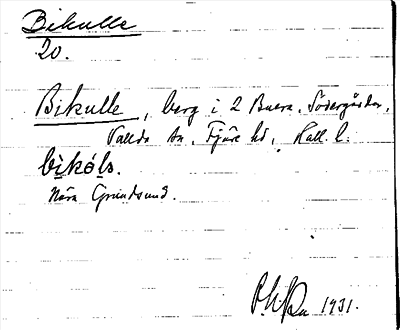 Bikulle
20.
Bikulle, berg i 2 Buera, Södergården,
Vallda sn, Fjäre hd, Hall. l.
bìkóls.
Nära Grundsund.
1931.